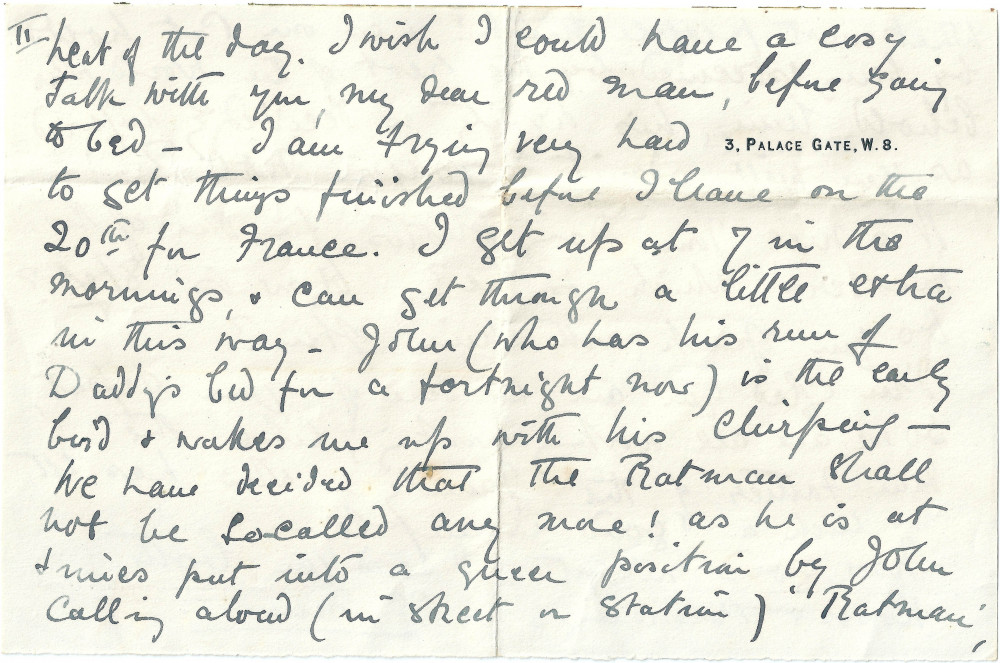 II
heat of the day. I wish I could have a cosy
talk with you, my dear red man, before going
to bed – I am trying very hard
3, PALACE GATE, W. 8.
to get things finished before I leave on the
20th for France. I get up at 7 in the
mornings, & can get through a little extra
in this way – John (who has his run of
Daddy's bed for a fortnight now) is the early
bird & wakes me up with his chirping –
We have decided that the Ratman shall
not be so-called any more! as he is at
times put into a queer position by John
calling aloud (in street or station) 'Ratman',